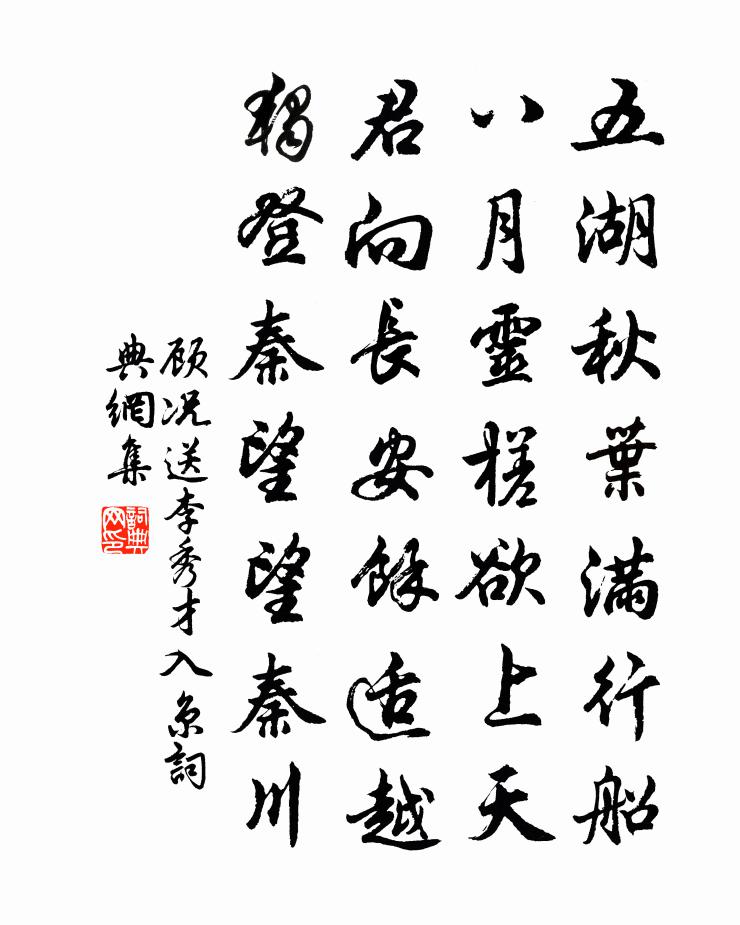 五湖秋葉滿行船
八月靈槎欲上天
君向長安餘适越
獨登秦望望秦川
顾况送李秀才入京詞
典網集
詞典网印